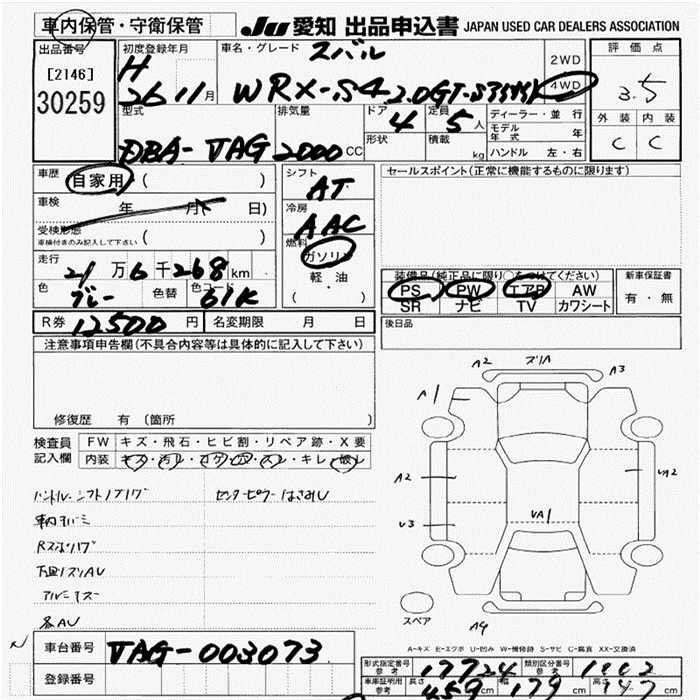 車内保管・守衛保管 JU 愛知 出品申込書 JAPAN USED CAR DEALERS ASSOCIATION
出品番号 初度登録年月 車名・グレード スバル 2WD 評価点
[2146] H 26 11月 WRX-S4 2.0GT-S 4WD 3.5
30259 型式 排気量 ドア 定員 ディーラー・並行 外装 内装
4 5人 モデル年式 年 C C
DBA-VAG 2000CC 形状 積載 kg ハンドル 左・右
車歴 自家用 ( ) シフト AT セールスポイント(正常に機能するものに限ります)
車検 年 月 日) 冷房 AAC
受検形態 ( )
車検付きのみ記入して下さい
燃料 ガソリン
走行 21万6千268km 軽・油 装備品(純正品に限り○をつけてください) 新車保証書
色 グレー 色替 色コード 61K ( ) PS PW エアB AW 有・無
SR ナビ TV カワシート
R券 12500円 名変期限 月 日 後日品
注意事項申告欄(不具合内容等は具体的に記入して下さい)
A2 ズリA A3
A1
修復歴 有 〔箇所 〕
検査員記入欄 FW キズ・飛石・ヒビ割・リペア跡・X要
内装 キズ・汚れ・コゲ・穴・スレ・キレ・破レ
A2 VA2
ハンドル・シフトノブハゲ センターピラーはさみU
VA1
U3
各AU
スペア
A4
A-キズ E-エクボ U-凹み W-補修跡 S-サビ C-腐食 XX-交換済
車台番号 VAG-003073
登録番号
形式指定番号 参考 17724 類別区分番号 参考
車庫証明用 参考 長さ 459cm 幅 179cm 高さ 147cm